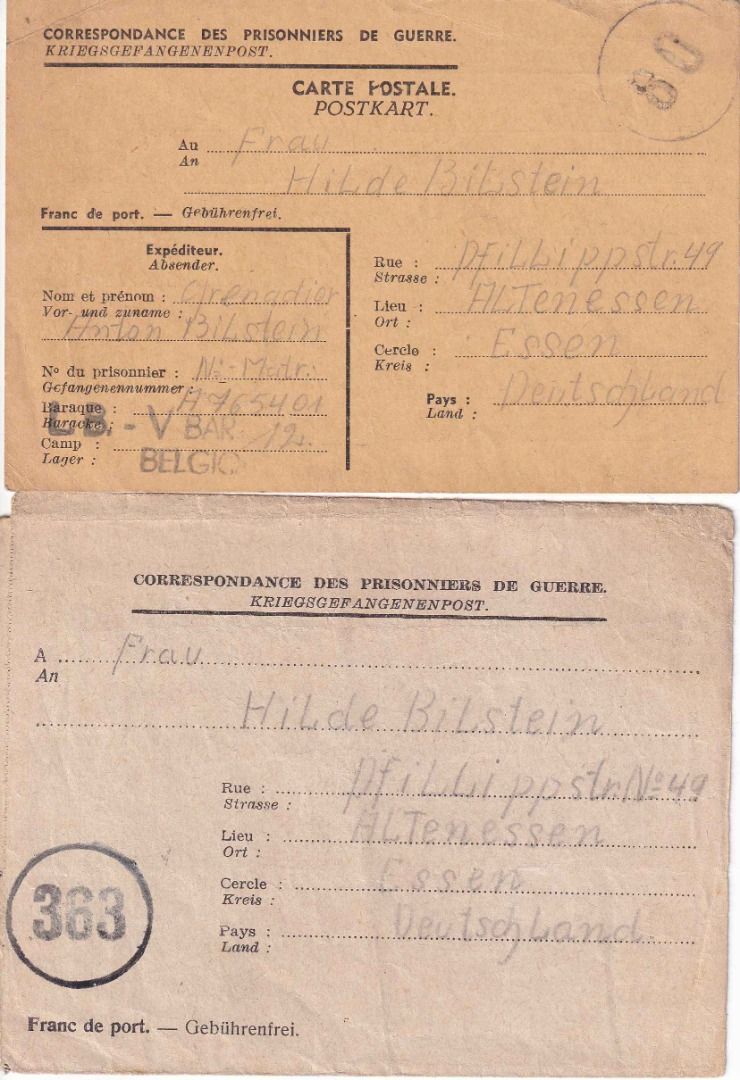 CORRESPONDANCE DES PRISONNIERS DE GUERRE.
KRIEGSGEFANGENENPOST.
80
CARTE POSTALE.
POSTKART.
Au Frau
An
Hilde Bilstein
Franc de port. — Gebührenfrei.
Expéditeur.
Absender.
Nom et prénom : Grenadier
Vor- und zuname :
Anton Bilstein
N° du prisonnier : N:-Matr:
Gefangenennummer :
Baraque : A765401
Baracke :
BAR 12.
Camp :
Lager :
BELGIC
Rue : Pfillippstr. 49
Strasse :
Lieu : Altenessen
Ort :
Cercle : Essen
Kreis :
Pays : Deutschland
Land :
CORRESPONDANCE DES PRISONNIERS DE GUERRE.
KRIEGSGEFANGENENPOST.
A Frau
An
Hilde Bilstein
Rue : Pfillippstr. No 49
Strasse :
Lieu : Altenessen
Ort :
Cercle : Essen
Kreis :
Pays : Deutschland
Land :
363
Franc de port. — Gebührenfrei.